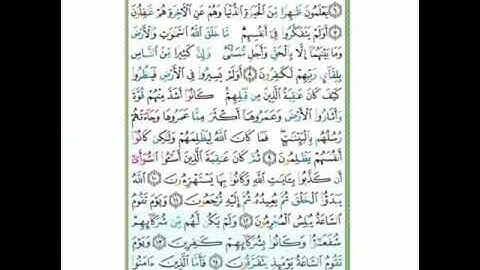 يَعْلَمُونَ ظَٰهِرًا مِّنَ ٱلْحَيَوٰةِ ٱلدُّنْيَا وَهُمْ عَنِ ٱلْءَاخِرَةِ هُمْ غَٰفِلُونَ
٧ أَوَلَمْ يَتَفَكَّرُوا۟ فِىٓ أَنفُسِهِم مَّا خَلَقَ ٱللَّهُ ٱلسَّمَٰوَٰتِ وَٱلْأَرْضَ
وَمَا بَيْنَهُمَآ إِلَّا بِٱلْحَقِّ وَأَجَلٍ مُّسَمًّى وَإِنَّ كَثِيرًا مِّنَ ٱلنَّاسِ
بِلِقَآئِ رَبِّهِمْ لَكَٰفِرُونَ ٨ أَوَلَمْ يَسِيرُوا۟ فِى ٱلْأَرْضِ فَيَنظُرُوا۟
كَيْفَ كَانَ عَٰقِبَةُ ٱلَّذِينَ مِن قَبْلِهِمْ كَانُوٓا۟ أَشَدَّ مِنْهُمْ قُوَّةً
وَأَثَارُوا۟ ٱلْأَرْضَ وَعَمَرُوهَآ أَكْثَرَ مِمَّا عَمَرُوهَا وَجَآءَتْهُمْ
رُسُلُهُم بِٱلْبَيِّنَٰتِ فَمَا كَانَ ٱللَّهُ لِيَظْلِمَهُمْ وَلَٰكِن كَانُوٓا۟
أَنفُسَهُمْ يَظْلِمُونَ ٩ ثُمَّ كَانَ عَٰقِبَةَ ٱلَّذِينَ أَسَٰٓـُٔوا۟ ٱلسُّوٓأَىٰٓ
أَن كَذَّبُوا۟ بِـَٔايَٰتِ ٱللَّهِ وَكَانُوا۟ بِهَا يَسْتَهْزِءُونَ ١٠ ٱللَّهُ
يَبْدَؤُا۟ ٱلْخَلْقَ ثُمَّ يُعِيدُهُۥ ثُمَّ إِلَيْهِ تُرْجَعُونَ ١١ وَيَوْمَ تَقُومُ
ٱلسَّاعَةُ يُبْلِسُ ٱلْمُجْرِمُونَ ١٢ وَلَمْ يَكُن لَّهُم مِّن شُرَكَآئِهِمْ
شُفَعَٰٓؤُا۟ وَكَانُوا۟ بِشُرَكَآئِهِمْ كَٰفِرِينَ ١٣ وَيَوْمَ
تَقُومُ ٱلسَّاعَةُ يَوْمَئِذٍ يَتَفَرَّقُونَ ١٤ فَأَمَّا ٱلَّذِينَ ءَامَنُوا۟